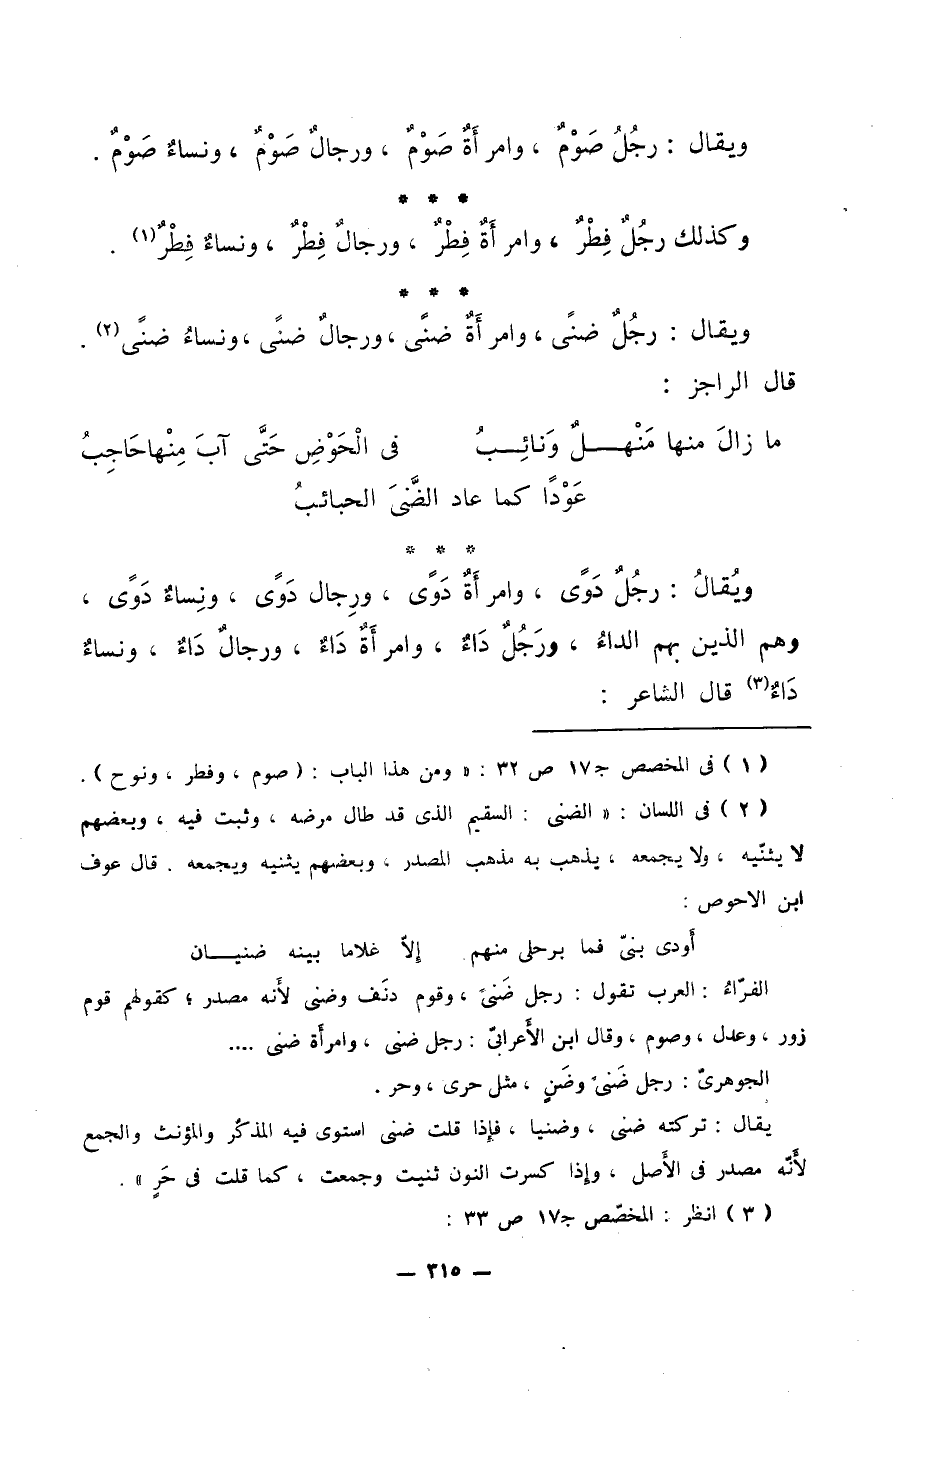 ويقال : رجُلُ صَوْمٌ ، وامرأَةٌ صَوْمٌ ، ورجالٌ صَوْمٌ ، ونساءٌ صَوْمٌ .
* * *
وكذلك رجُلٌ فِطْرٌ ، وامرأَةٌ فِطْرٌ ، ورجالٌ فِطْرٌ ، ونساءٌ فِطْرٌ(١) .
* * *
ويقال : رجُلٌ ضنًى ، وامرأَةٌ ضنًى ، ورجالٌ ضنًى ، ونساءُ ضنًى(٢) .
قال الراجز :
ما زالَ منها مَنْهـــلٌ وَنائِـــبُ في الْحَوْضِ حَتَّى آبَ مِنْها حَاجِبُ
عَوْدًا كما عاد الضَّنَى الحبائبُ
* * *
ويُقالُ : رجُلٌ دَوًى ، وامرأَةٌ دَوًى ، ورِجال دَوًى ، ونِساءٌ دَوًى ،
وهم الذين بهم الداءُ ، ورَجُلٌ دَاءٌ ، وامرأَةٌ دَاءٌ ، ورجالٌ دَاءٌ ، ونساءٌ
دَاءٌ(٣) قال الشاعر :
( ١ ) في المخصص جـ١٧ ص ٣٢ : « ومن هذا الباب : ( صوم ، وفطر ، ونوح ) .
( ٢ ) في اللسان : « الضنى : السقيم الذى قد طال مرضه ، وثبت فيه ، وبعضهم
لا يثنّيه ، ولا يجمعه ، يذهب به مذهب المصدر ، وبعضهم يثنيه ويجمعه . قال عوف
ابن الاحوص :
أَودى بنيّ فما برحلى منهم إلاّ غلاما بينه ضنيـــان
الفرّاءُ : العرب تقول : رجل ضَنىً ، وقوم دنَف وضنى لأَنه مصدر ؛ كقولهم قوم
زور ، وعدل ، وصوم ، وقال ابن الأَعرابىّ : رجل ضنى ، وامرأَة ضنى ....
الجوهرىّ : رجل ضَنىً وضَنٍ ، مثل حرى ، وحر .
يقال : تركته ضنى ، وضنيا ، فإذا قلت ضنى استوى فيه المذكر والمؤنث والجمع
لأَنّه مصدر في الأَصل ، وإذا كسرت النون ثنيت وجمعت ، كما قلت في حَرٍ » .
( ٣ ) انظر : المخصّص جـ١٧ ص ٣٣ :
— ٣١٥ —